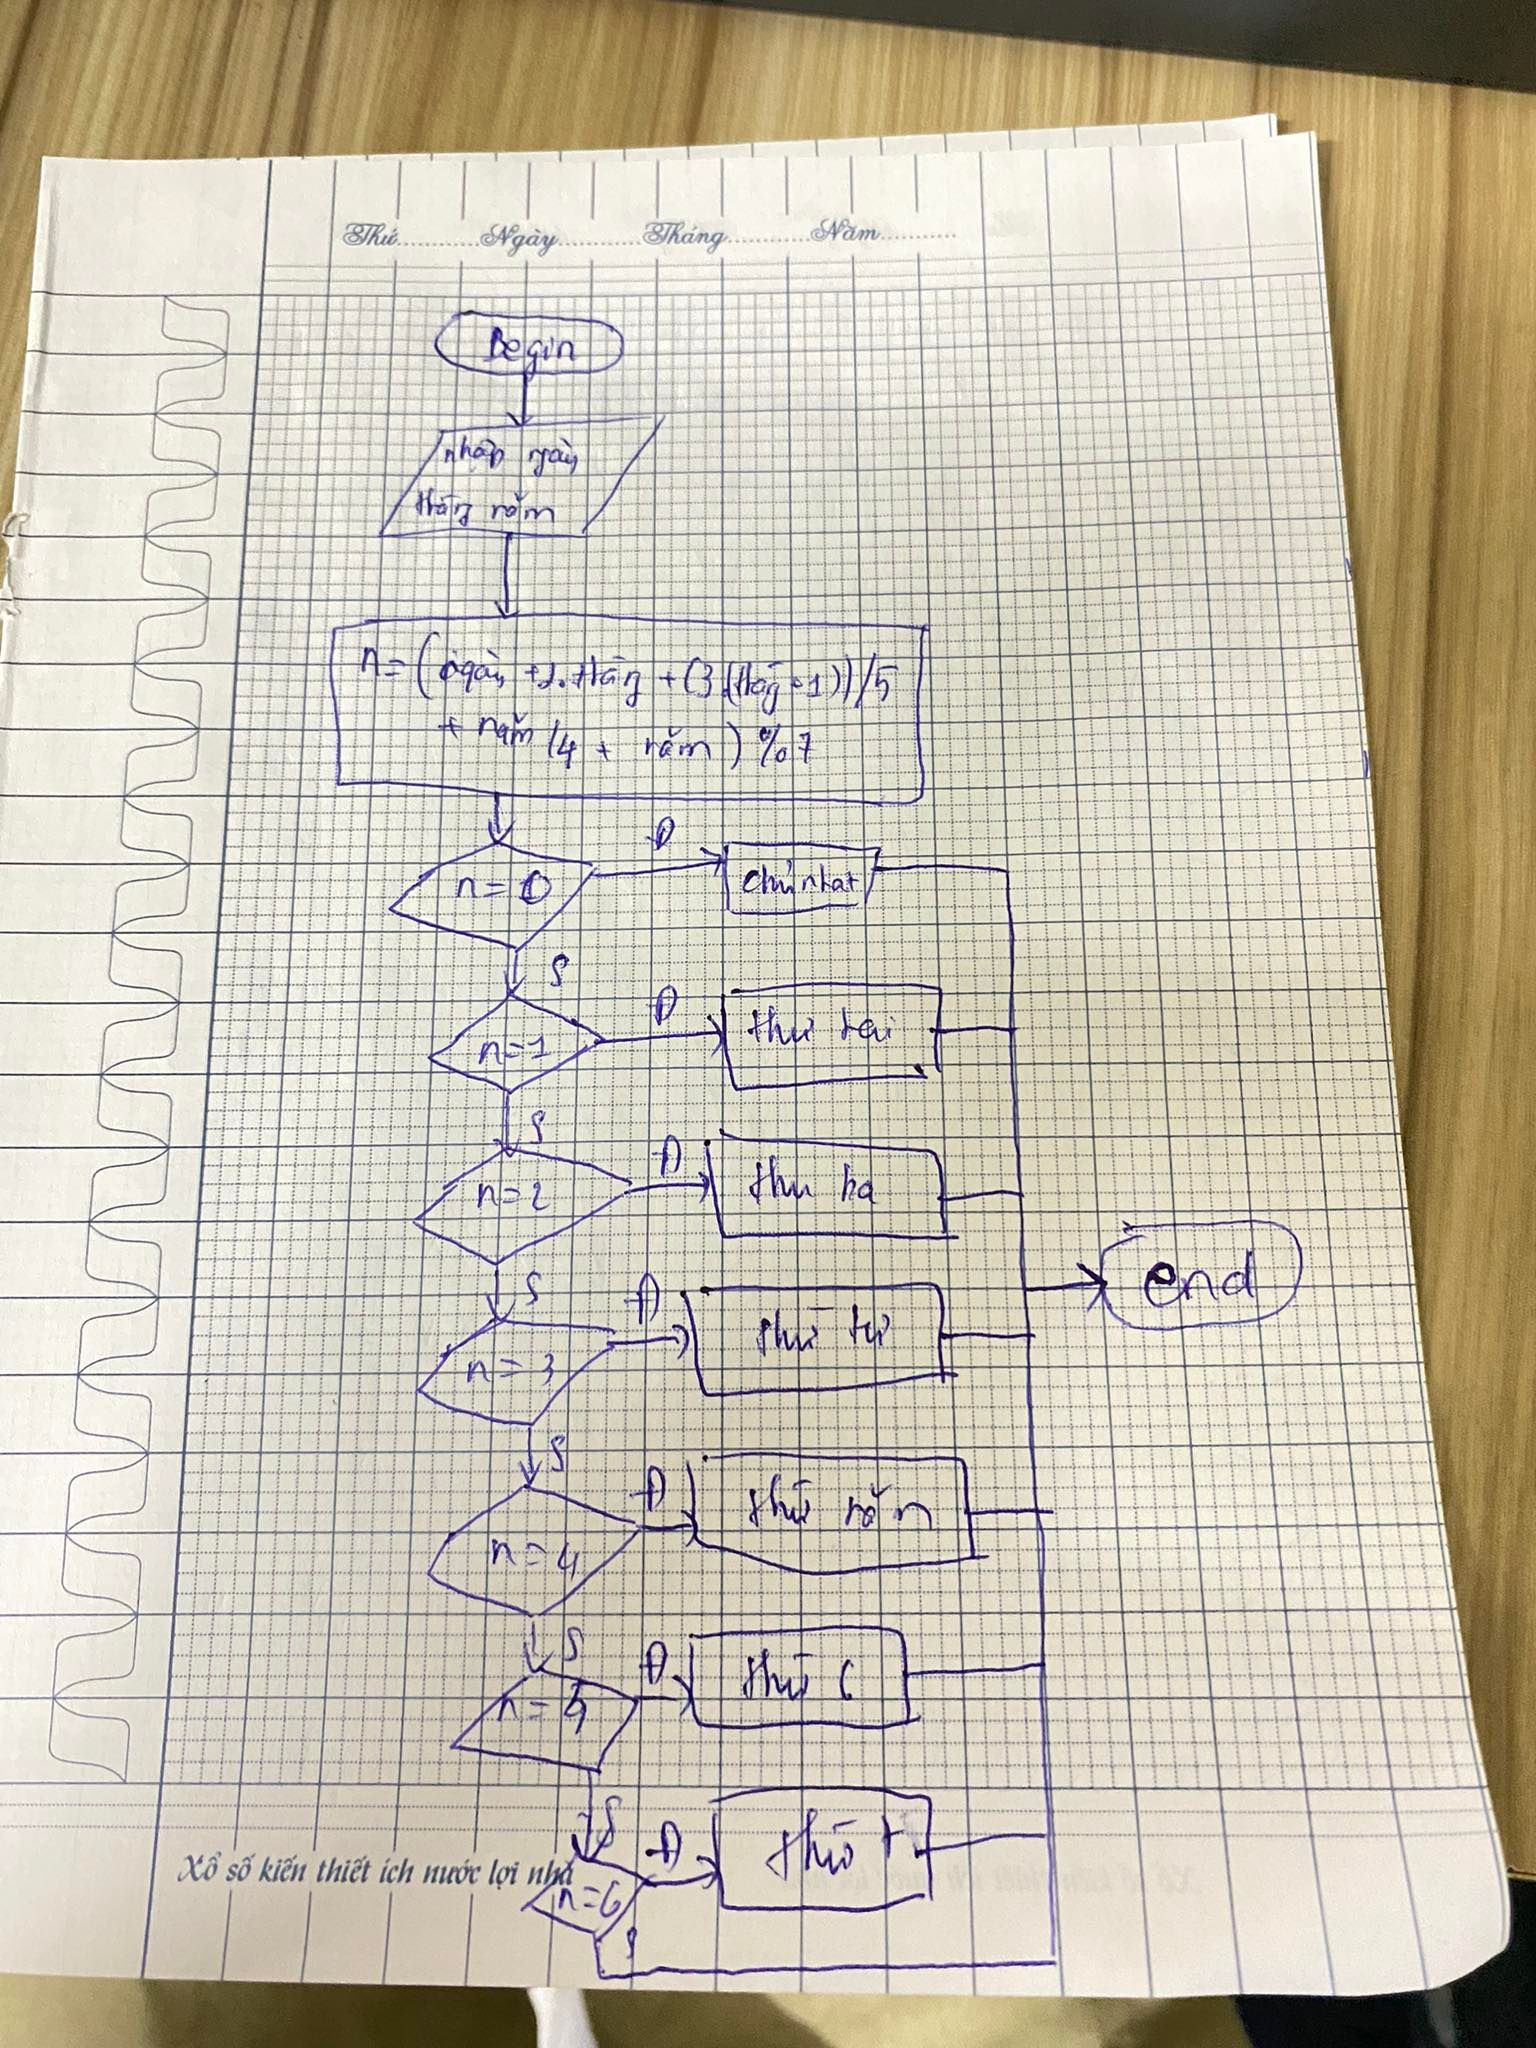 Thứ............Ngày............Tháng............Năm............
Begin
nhập ngày
tháng năm
n = (ngày + 2.tháng + (3.(tháng+1))/5
+ năm/4 + năm) % 7
n = 0
Đ
chủ nhật
S
n=1
Đ
thứ hai
S
n=2
Đ
thứ ba
S
n = 3
Đ
thứ tư
end
S
n=4
Đ
thứ năm
S
n=5
Đ
thứ 6
S
n=6
Đ
thứ 7
S
Xổ số kiến thiết ích nước lợi nhà